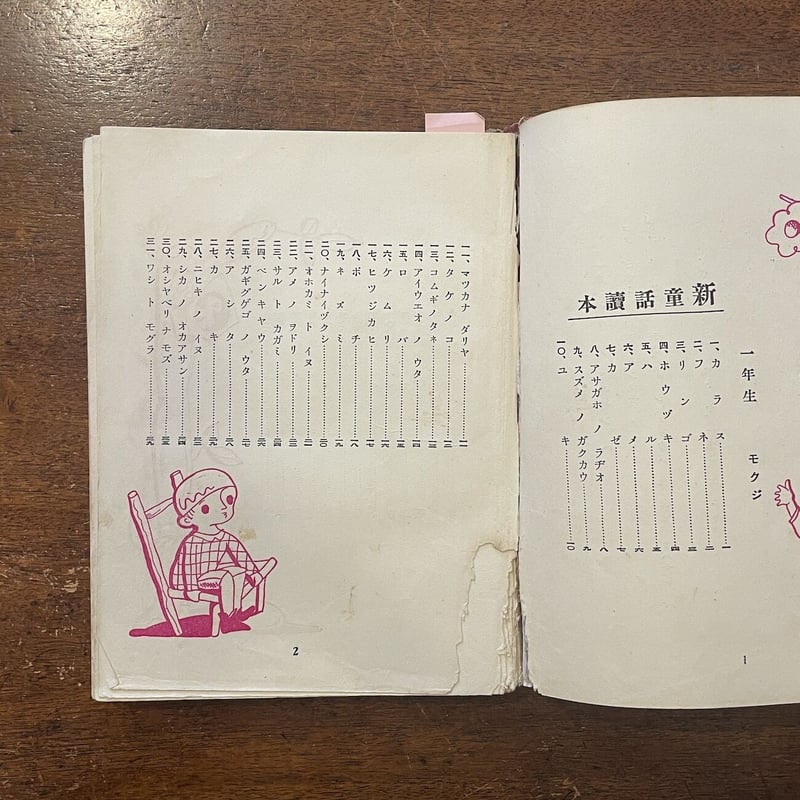 新童話讀本
一年生 モクジ
一、カラス……一
二、フネ……二
三、リンゴ……三
四、ホウヅキ……四
五、ハル……五
六、アメ……六
七、カゼ……七
八、アサガホ ノ ラヂオ……八
九、スズメ ノ ガクカウ……九
一〇、ユキ……一〇
1
一一、マツカナ ダリヤ……
一二、タケノコ……
一三、コムギノタネ……
一四、アイウエオ ノ ウタ……
一五、ロバ……
一六、ケムリ……
一七、ヒツジカヒ……
一八、ポチ……
一九、ネズミ……
二〇、ナイナイヅクシ……
二一、オホカミ ト イヌ……
二二、アメ ノ ヲドリ……
二三、サル ト カガミ……
二四、ベンキヤウ……
二五、ガギグゲゴ ノ ウタ……
二六、アシタ……
二七、カキ……
二八、ニヒキ ノ イヌ……
二九、シカ ノ オカアサン……
三〇、オシヤベリ ナ モズ……
三一、ワシ ト モグラ……
2